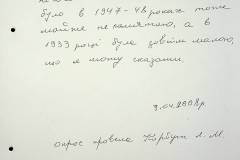 було в 1947-48 роках тоже
майже не памятаю, а в
1933 році була зовсім малою,
що я можу сказати.
9.04.2008р.
опрос провела Корбут Л. М.